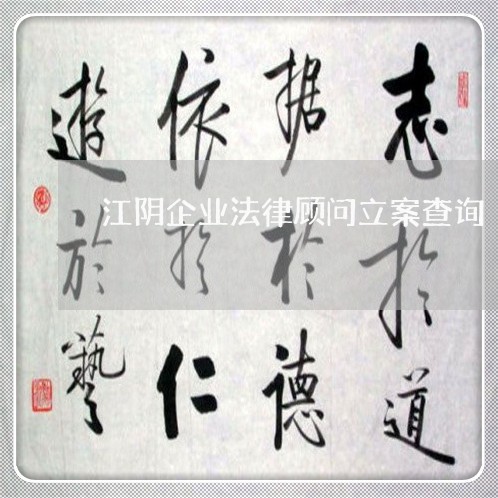 志於道
据於德
依於仁
遊於藝
江阴企业法律顾问立案查询